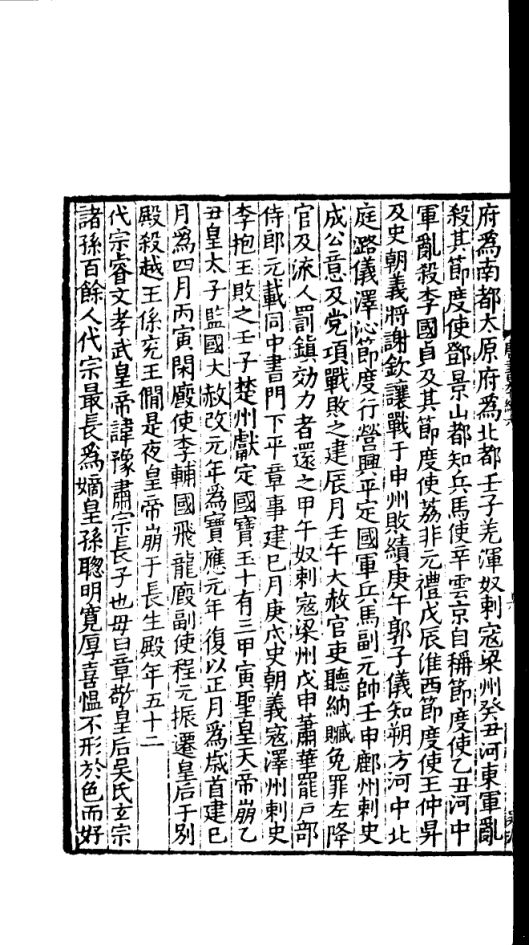 府爲南都太原府爲北都壬子羌渾奴剌寇梁州癸丑河東軍亂
殺其節度使鄧景山都知兵馬使辛雲京自稱節度使乙丑河中
軍亂殺李國貞及其節度使荔非元禮戊辰淮西節度使王仲昇
及史朝義將謝欽讓戰于申州敗績庚午郭子儀知朔方河中北
庭潞儀澤沁節度行營興平定國軍兵馬副元帥壬申鄜州刺史
成公意及党項戰敗之建辰月壬午大赦官吏聽納贓免罪左降
官及流人罰鎮効力者還之甲午奴剌寇梁州戊申蕭華罷戸部
侍郎元載同中書門下平章事建巳月庚戌史朝義寇澤州刺史
李抱玉敗之壬子楚州獻定國寶玉十有三甲寅聖皇天帝崩乙
丑皇太子監國大赦改元年爲寶應元年復以正月爲歲首建巳
月爲四月丙寅閑廄使李輔國飛龍廄副使程元振遷皇后于别
殿殺越王係兖王僩是夜皇帝崩于長生殿年五十二
代宗睿文孝武皇帝諱豫肅宗長子也毋曰章敬皇后吳氏玄宗
諸孫百餘人代宗最長爲嫡皇孫聰明寛厚喜愠不形於色而好